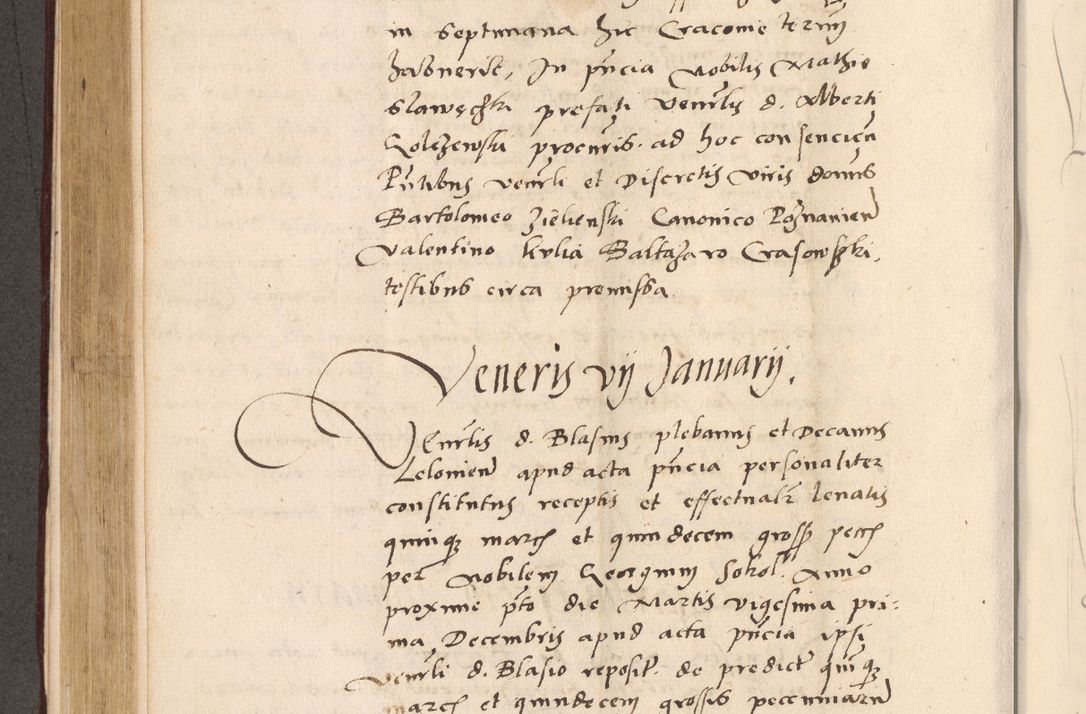 in Septimana hic Cracovie termī
habuerit, In pn̄cia Nobilis Mathie
Slawęczki prefati Venrlis d. Alberti
Golczewski procuris ad hoc consencien̄
Pn̄tibus venrli et Discretis Viris domīs
Bartolomeo Zielienski Canonico Poznanien̄
Valentino Baltazaro Crasowski,
testibus circa premissa
Veneris vij Januarij.
Venrlis d. Blasius plebanus et Decanus
Lelovien̄ apud acta pn̄cia personaliter
constitutus receptis et effectualr levatis
quinqȝ march et quindecem gross pecch
per Nobilem Georgium Sokol. Anno
proxime pt̄o die Martis vigesima pri:
ma Decembris apud acta pn̄cia ipsi
Venrli d. Blasio reposit. de predict quīqȝ
march et quindecem grossis pecuniarū